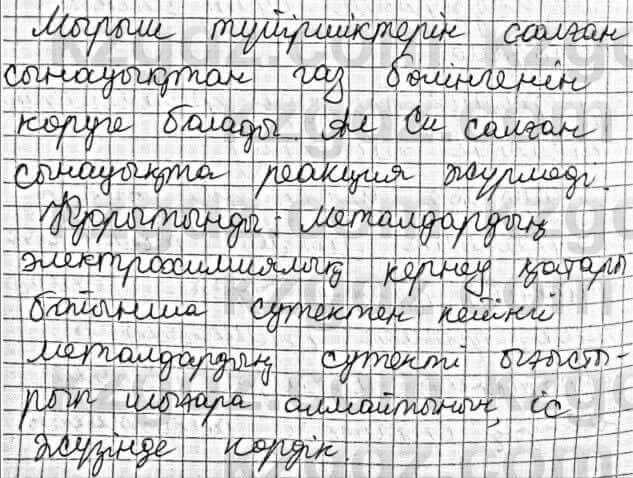 Мырыш түйіршіктерін салған
сынауықтан газ бөлінгенін
көруге болады. Ал Cu салған
сынауықта реакция жүрмеді.
Қорытынды: Металдардың
электрохимиялық кернеу қатары
бойынша сутектен кейінгі
металдардың сутекті ығысты-
рып шығара алмайтынын, іс
жүзінде көрдік.